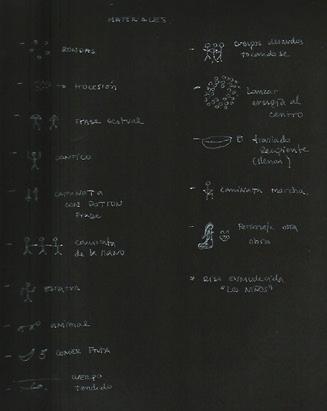 MATERIALES
- RONDAS
- PROCESIÓN
- FRASE GESTUAL
- CANTICO
- CAMINATA
CON
FRASE
- CAMINATA
de la mano
- ESTATUA
- animal
- COMER FRUTA
- CUERPO
tendido
- Cuerpos desnudos
tocandose
- Lanzar
energía al
centro
- traslado
Recipiente
(llenar)
- CAMINATA marcha.
- Personaje otra
obra
* RISA enmudecida
"LOS NIÑOS"